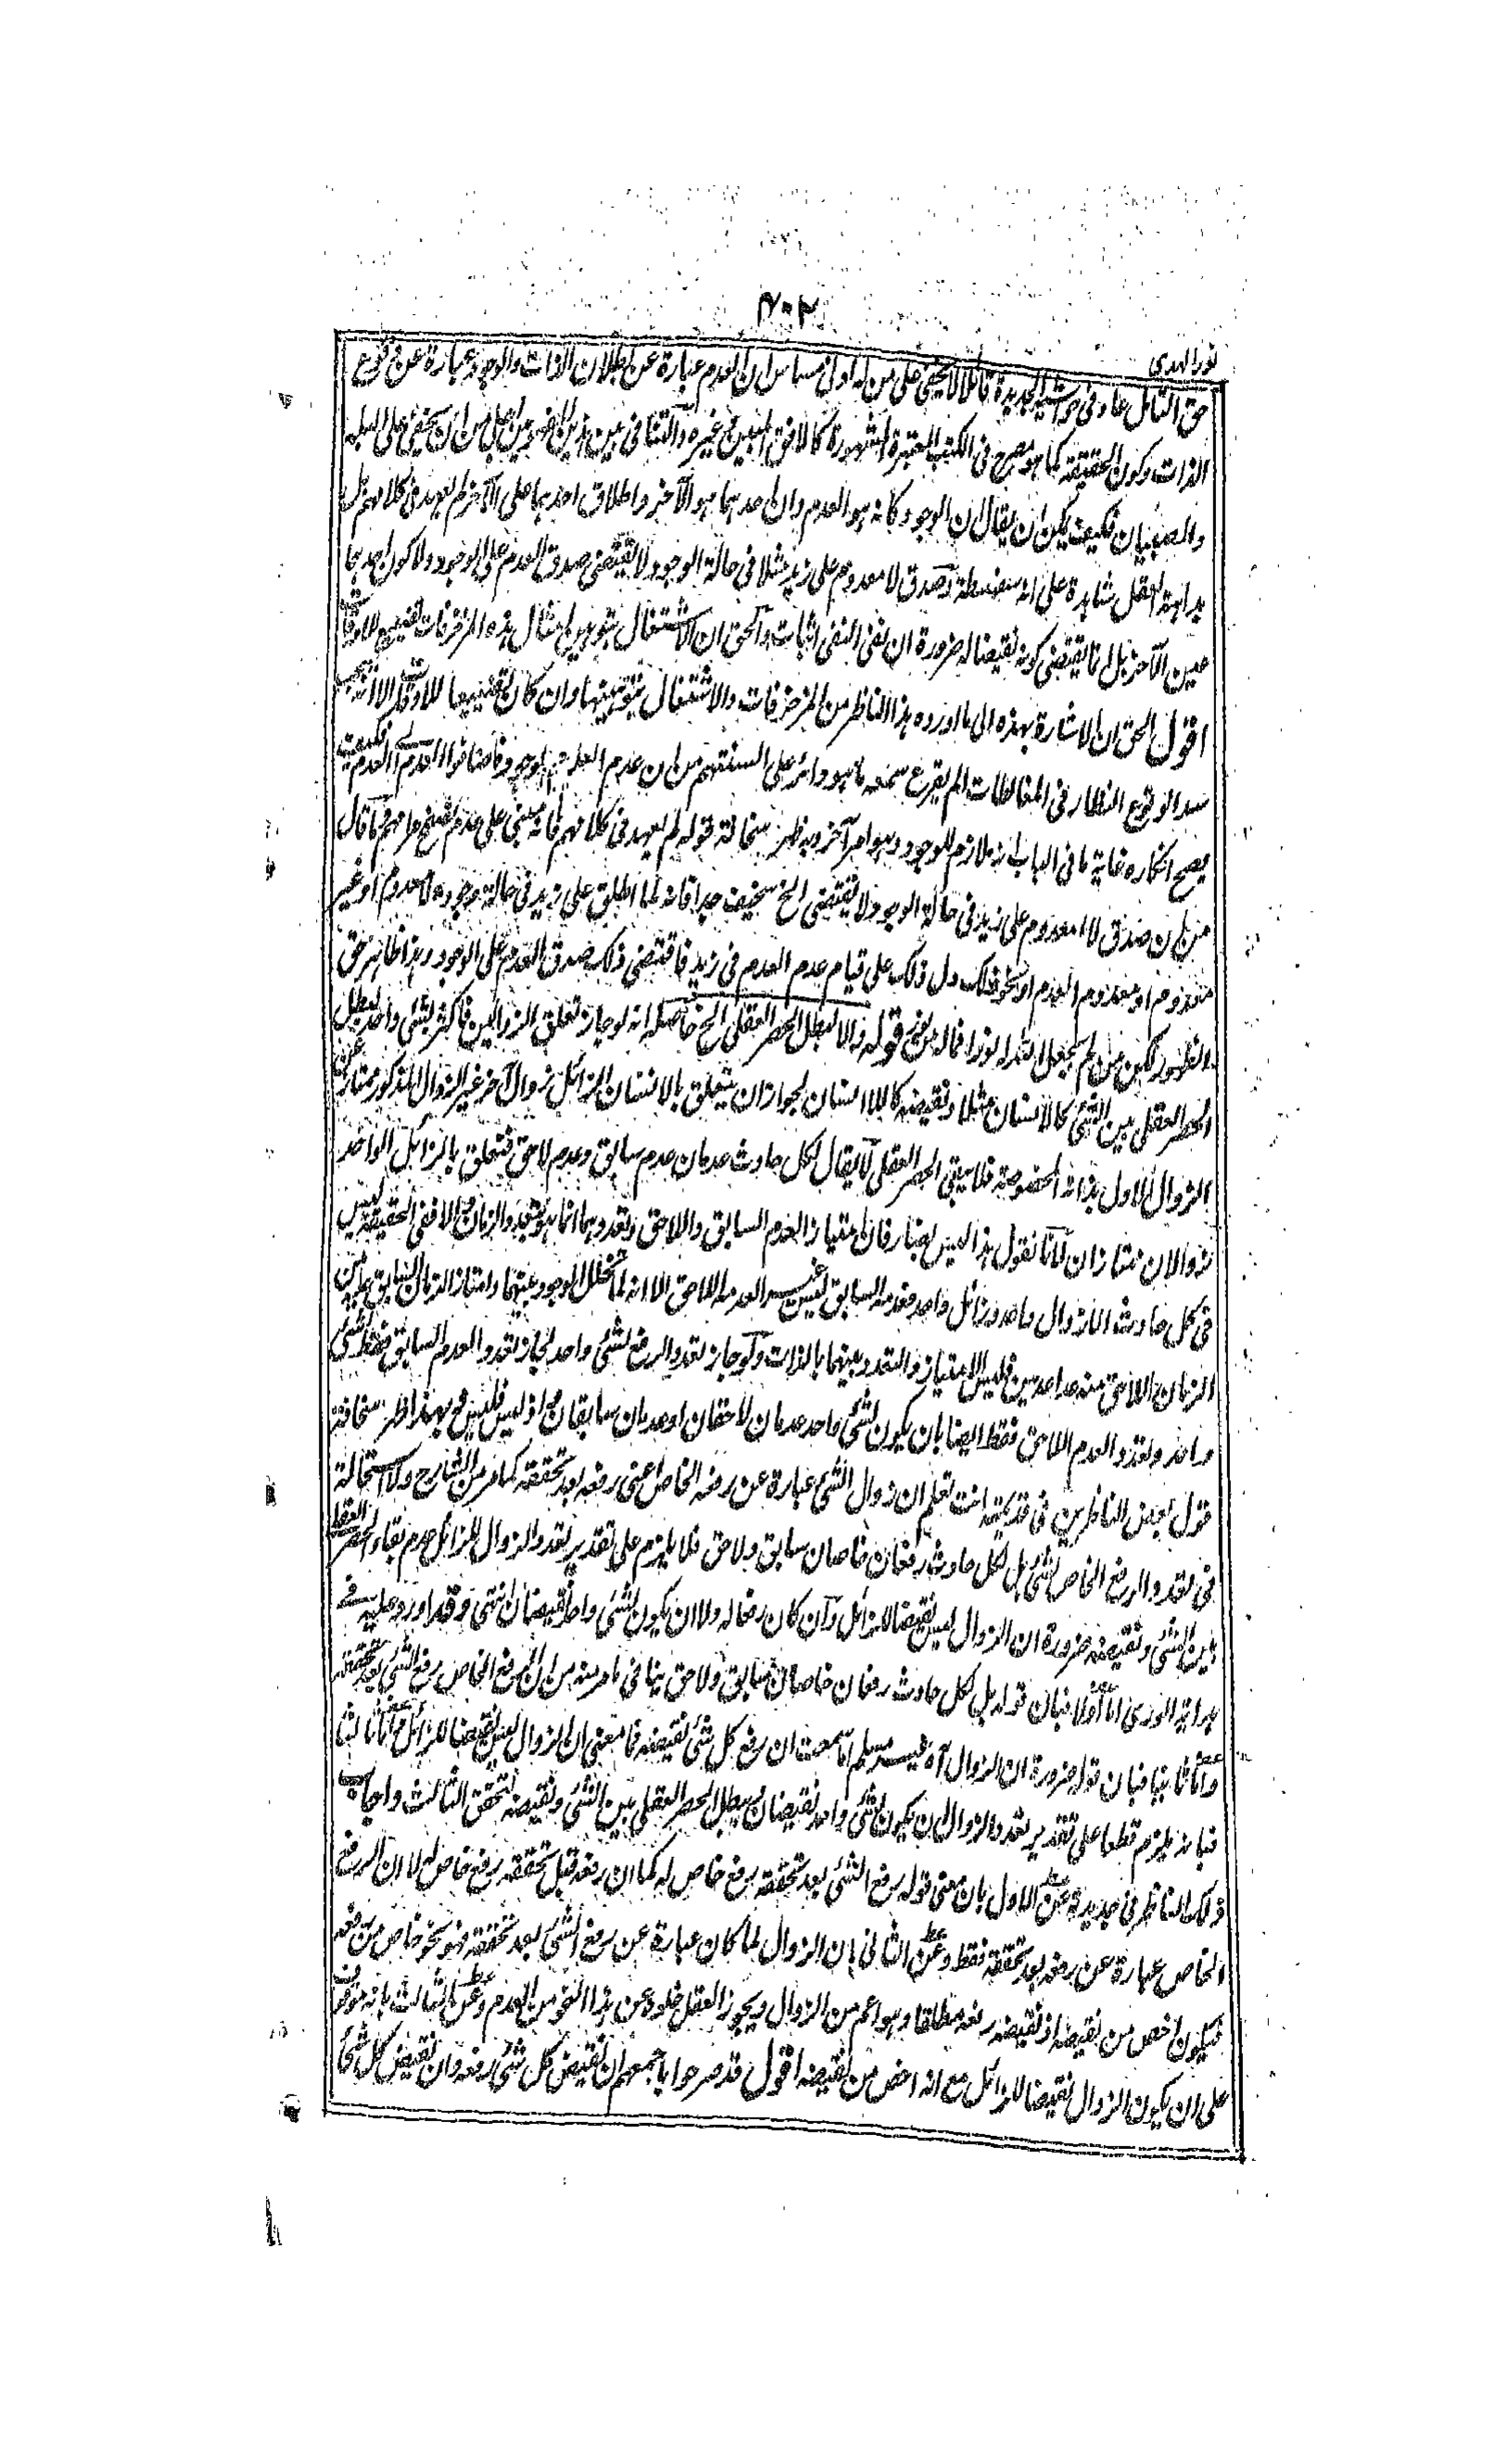 ٣٠٢
نور الهدى
حق التامل عاد فى حواشيه الجديدة قائلا لا يخفى على من له ادنى مساس ان العدم عبارة عن بطلان الذات والوجود عبارة عن وقوع
الذات وكون الحقيقة كما هو مصرح فى الكتب المعتبرة المشهورة كالافق المبين وغيره والتنافى بين هذين المفهومين اجلى من ان يخفى على البله
والصبيان فكيف يمكن ان يقال ان الوجود كانه هو العدم وان احدهما هو الآخر واطلاق احدهما على الآخر لم يعهد فى كلامهم بل
بداهة العقل شاهدة على انه سفسطة وصدق لا معدوم على زيد مثلا فى حالة الوجود لا يقتضى صدق العدم على الوجود ولا كون احدهما
عين الآخر بل انما يقتضى كونه نقيضا له ضرورة ان نفى النفى اثبات والحق ان الاشتغال بتوهين امثال هذه المزخرفات تضييع للاوقات
اقول الحق ان الاشارة بهذه الى ما اورده هذا الناظر من المزخرفات والاشتغال بتوهينها وان كان تضييعا للاوقات الا انه يجب
سدا لوقوع النظار فى المغالطات الم يقرع سمعه ما هو دائر على السنتهم من ان عدم العدم وجود فاضافوا العدم الى العدم فكيف
يصح انكاره غاية ما فى الباب انه ملازم للوجود وهو امر آخر وبه ظهر سخافة قوله لم يعهد فى كلامهم فانه مبنى على عدم تصفح مرامهم فما قال
من ان صدق لا معدوم على زيد فى حالة الوجود لا يقتضى الخ سخيف جدا فانه لما اطلق على زيد فى حالة وجوده لا معدوم او غير
معدوم او معدوم العدم او نحو ذلك دل ذلك على قيام عدم العدم فى زيد فاقتضى ذلك صدق العدم على الوجود وهذا ظاهر حق
الظهور لكن من لم يجعل الله له نورا فما له من نور قوله والا لبطل الحصر العقلى الخ حاصله انه لو جاز تعلق الزوالين فاكثر بشئ واحد لبطل
الحصر العقلى بين الشئ كالانسان مثلا ونقيضه كاللا انسان لجواز ان يتعلق بالانسان الزائل زوال آخر غير الزوال المذكور ممتاز عن
الزوال الاول بذاته المخصوصة فلا يبقى الحصر العقلى لا يقال لكل حادث عدمان عدم سابق وعدم لاحق فتعلق بالزائل الواحد
زوالان ممتازان لانا نقول هذا ليس بضار فان امتياز العدم السابق واللاحق وتعددهما انما هو بتعدد الزمان والا ففى الحقيقة ليس
فى كل حادث الا زوال واحد وزائل واحد فعدمه السابق ليس غير العدم اللاحق الا انه لما تخلل الوجود بينهما وامتاز الزمان السابق عليه من
الزمان اللاحق منه عدا عدمين فليس الامتياز والتعدد بينهما بالذات ولو جاز تعدد الرفع لشئ واحد لجاز تعدد العدم السابق فقط لشئ
واحد وتعدد العدم اللاحق فقط ايضا بان يكون لشئ واحد عدمان لاحقان او عدمان سابقان مع اذ ليس فليس مع بهذا ظهر سخافة
قول بعض الناظرين فى قديمته انت تعلم ان زوال الشئ عبارة عن رفعه الخاص اعنى رفعه بعد تحققه كما مر من الشارح ولا استحالة
فى تعدد الرفع الخاص لشئ بل لكل حادث رفعان خاصان سابق ولاحق فلا يلزم على تقدير تعدد الزوال للزائل عدم بقاء الحصر العقلى
بين الشئ ونقيضه ضرورة ان الزوال ليس نقيضا للزائل وان كان رفعا له ولا ان يكون لشئ واحد نقيضان انتهى وقد اورد عليه فى
هداية الورى اما اولا فبان قوله بل لكل حادث رفعان خاصان سابق ولاحق ينافى ما مر منه من ان الرفع الخاص رفع الشئ بعد تحققه
واما ثانيا فبان قوله ضرورة ان الزوال اه غير مسلم اما سمعت ان رفع كل شئ نقيضه فما معنى ان الزوال ليس نقيضا للزائل واما ثالثا
فبانه يلزم قطعا على تقدير تعدد الزوال ان يكون لشئ واحد نقيضان ويبطل الحصر العقلى بين الشئ ونقيضه لتحقق الثالث واجاب
ذلك الناظر فى جديدته عن الاول بان معنى قوله رفع الشئ بعد تحققه رفع خاص له كما ان رفعه قبل تحققه رفع خاص له لا ان الرفع
الخاص عبارة عن رفعه بعد تحققه فقط وعن الثانى بان الزوال لما كان عبارة عن رفع الشئ بعد تحققه فهو نحو خاص من رفعه
فيكون اخص من نقيضه اذ نقيضه رفعه مطلقا وهو اعم من الزوال ويجوز العقل خلوه عن هذا النحو من العدم وعن الثالث بانه موقوف
على ان يكون الزوال نقيضا للزائل مع انه اخص من نقيضه اقول قد صرحوا باجمعهم ان نقيض كل شئ رفعه وان نقيض كل شئ